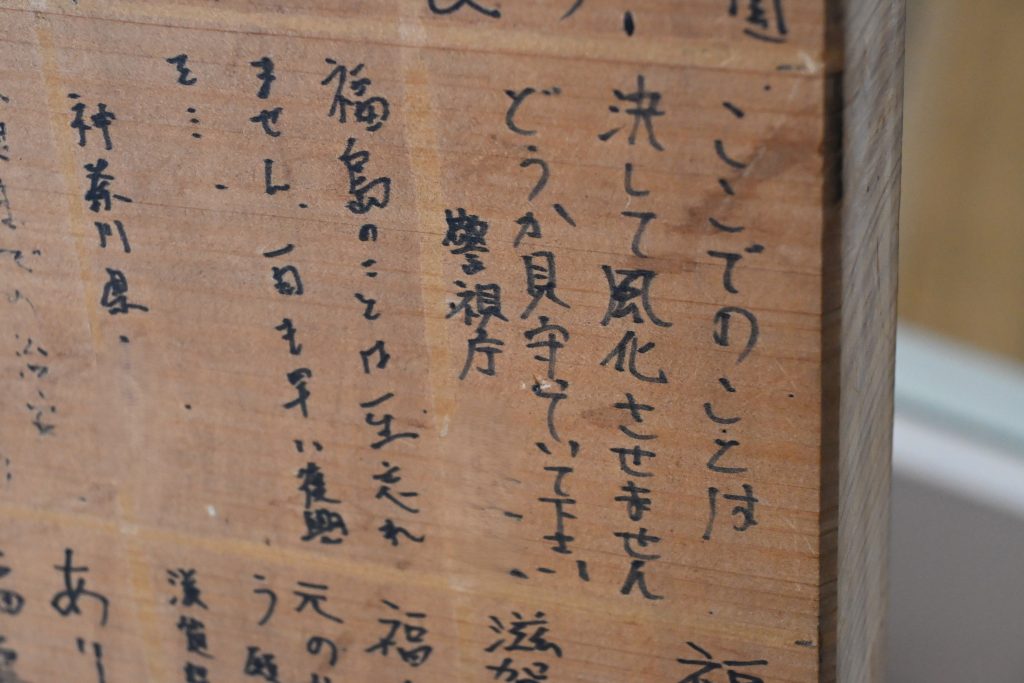 ここでのことは
決して風化させません
どうか見守っていて下さい
警視庁
福島のことは一生忘れ
ません。一日も早い復興
を…
神奈川県.
福
滋賀
福
元の
う
あり